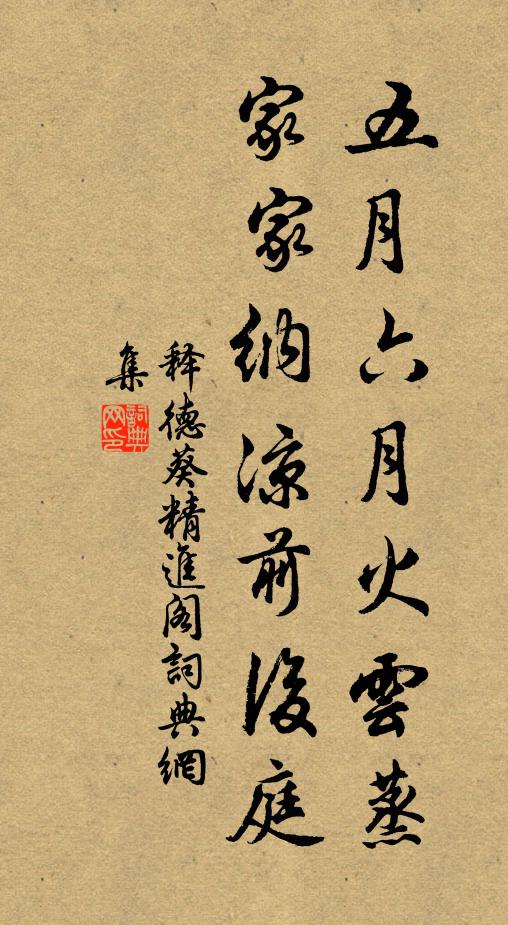 五月六月火雲蒸
家家納凉前後庭
释德葵精進閣詞典網
集
詞典网印